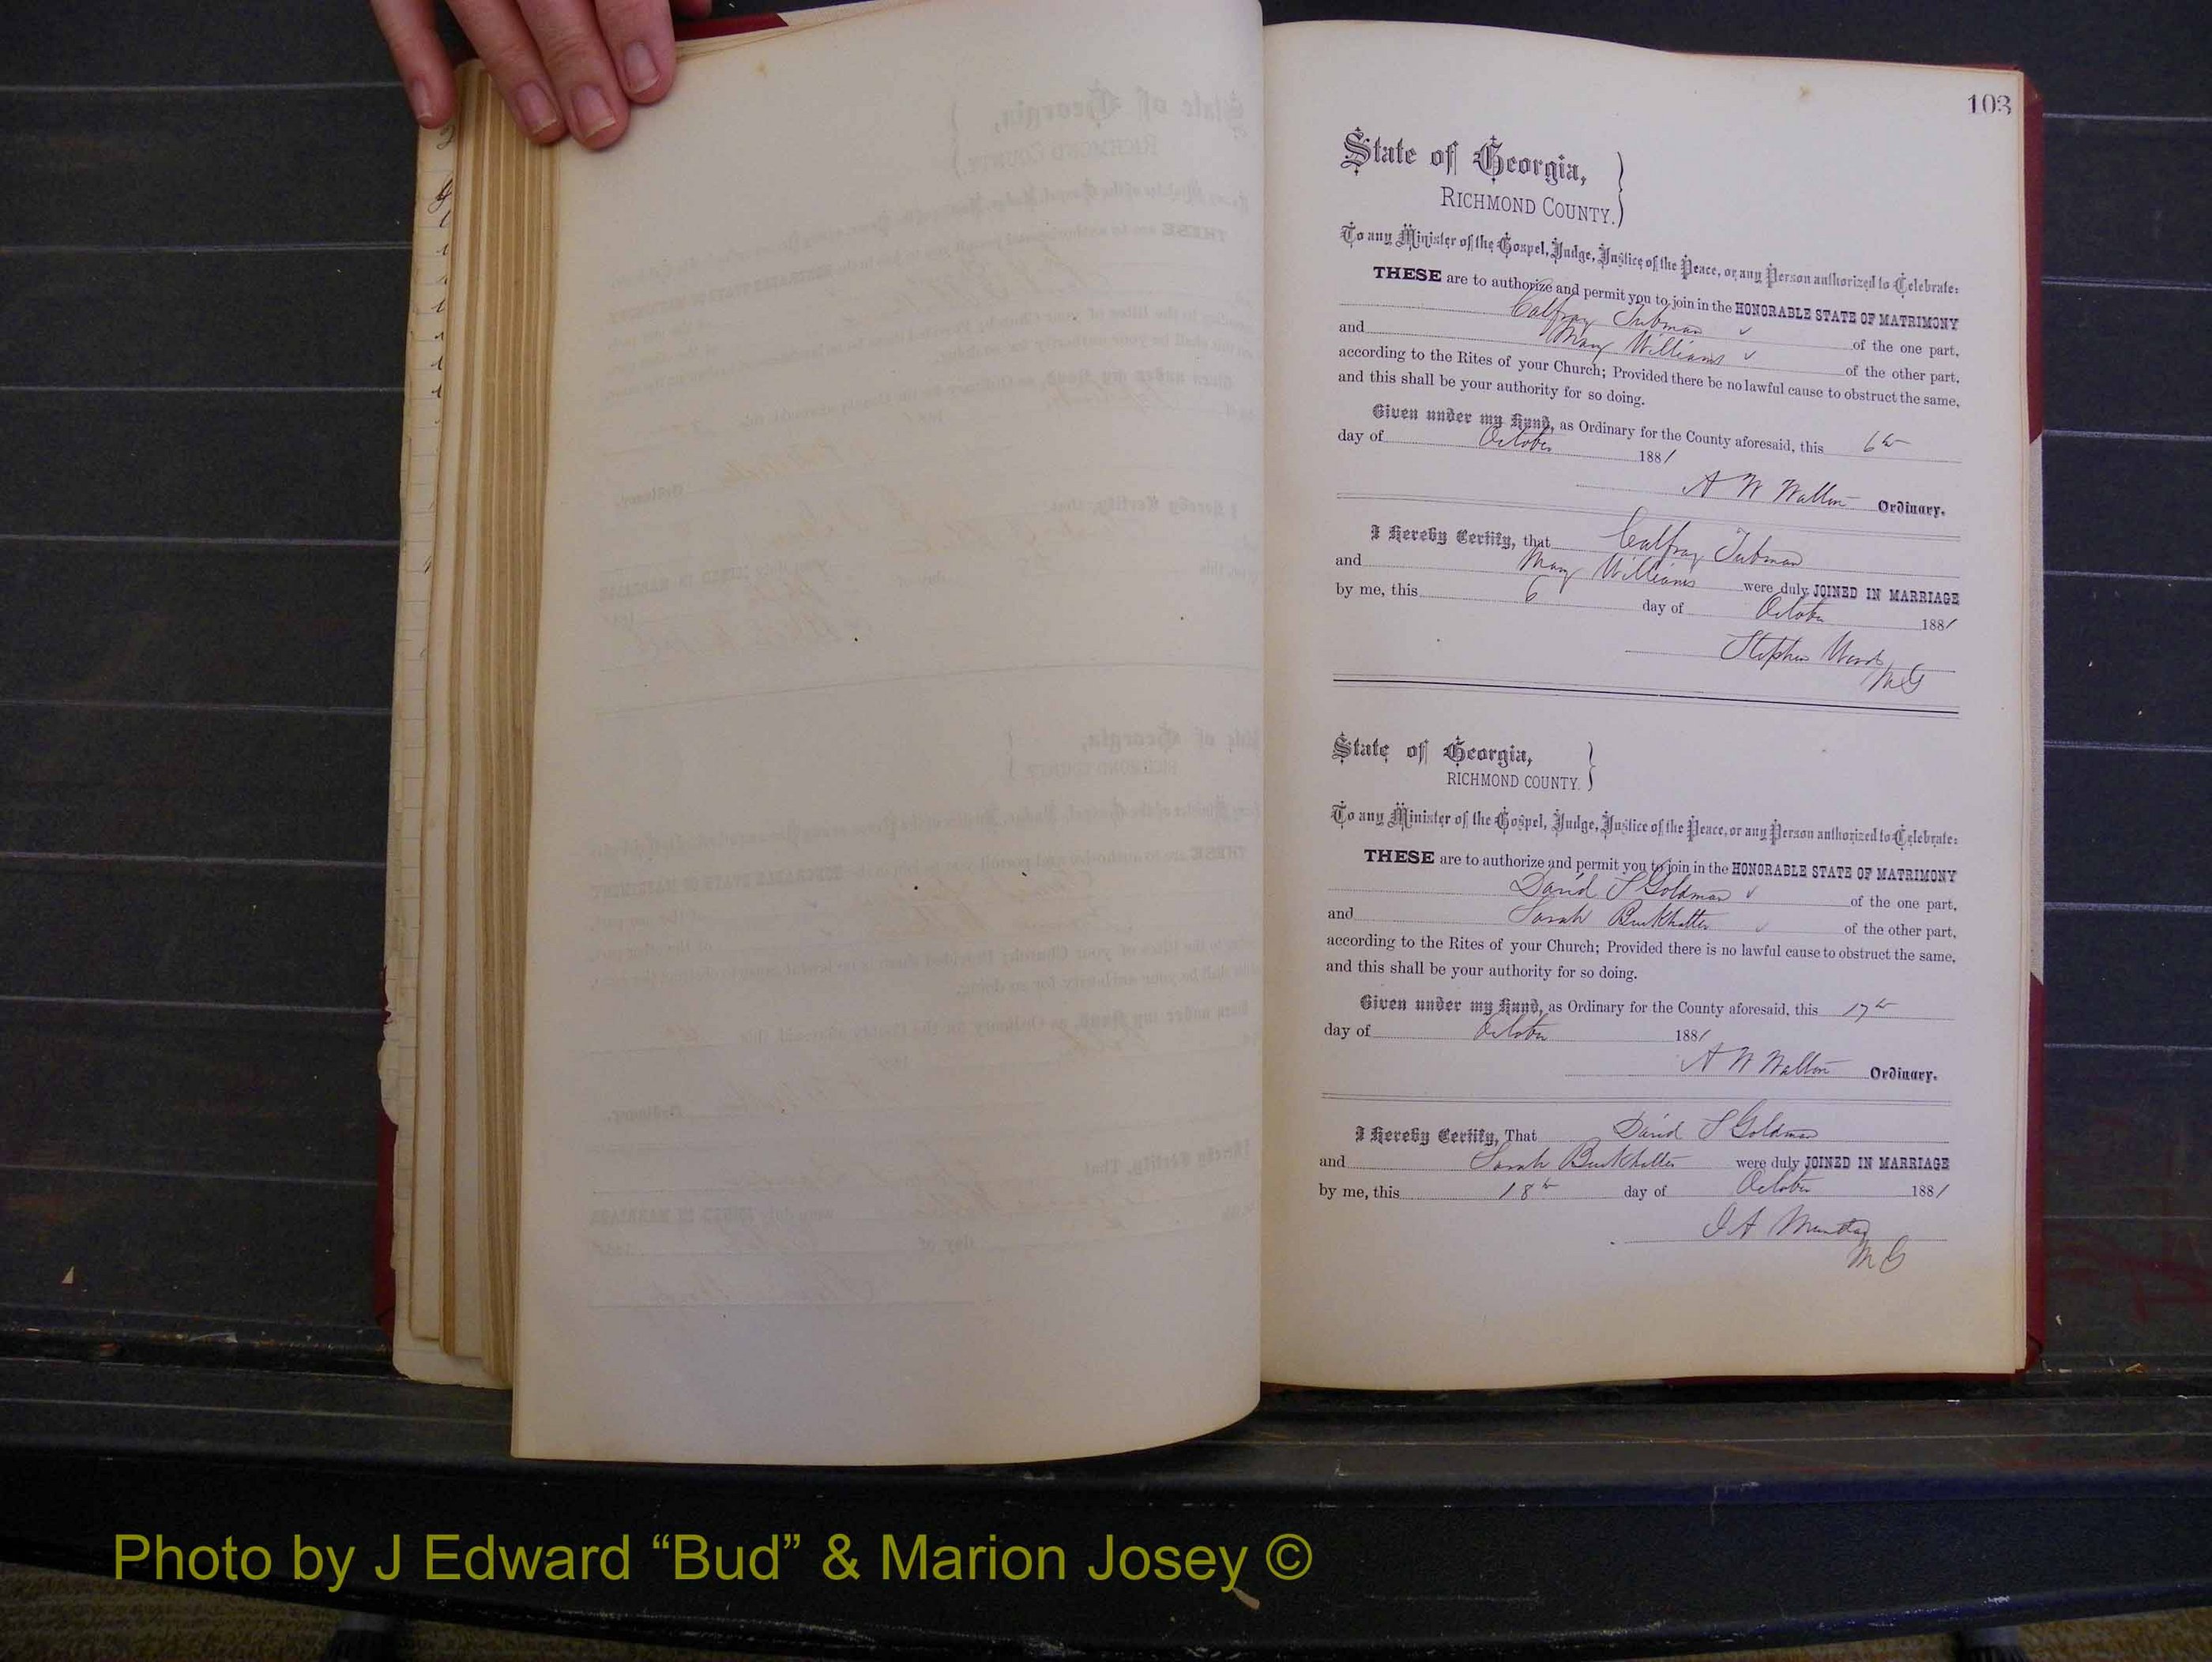 103
State of Georgia,
RICHMOND COUNTY.
To any Minister of the Gospel, Judge, Justice of the Peace, or any Person authorized to Celebrate:
THESE are to authorize and permit you to join in the HONORABLE STATE OF MATRIMONY
Tubman of the one part,
and Mary Williams of the other part,
according to the Rites of your Church; Provided there be no lawful cause to obstruct the same,
and this shall be your authority for so doing.
Given under my Hand, as Ordinary for the County aforesaid, this 6th
day of October 1881
A W Walton Ordinary.
I Hereby Certify, that Tubman
and Mary Williams were duly JOINED IN MARRIAGE
by me, this 6 day of October 1881
Stephen
M G
State of Georgia,
RICHMOND COUNTY.
To any Minister of the Gospel, Judge, Justice of the Peace, or any Person authorized to Celebrate:
THESE are to authorize and permit you to join in the HONORABLE STATE OF MATRIMONY
David S Goldman of the one part,
and Sarah Burkhalter of the other part,
according to the Rites of your Church; Provided there is no lawful cause to obstruct the same,
and this shall be your authority for so doing.
Given under my Hand, as Ordinary for the County aforesaid, this 17th
day of October 1881
A W Walton Ordinary.
I Hereby Certify, That David S Goldman
and Sarah Burkhalter were duly JOINED IN MARRIAGE
by me, this 18th day of October 1881
M G
Photo by J Edward “Bud” & Marion Josey ©